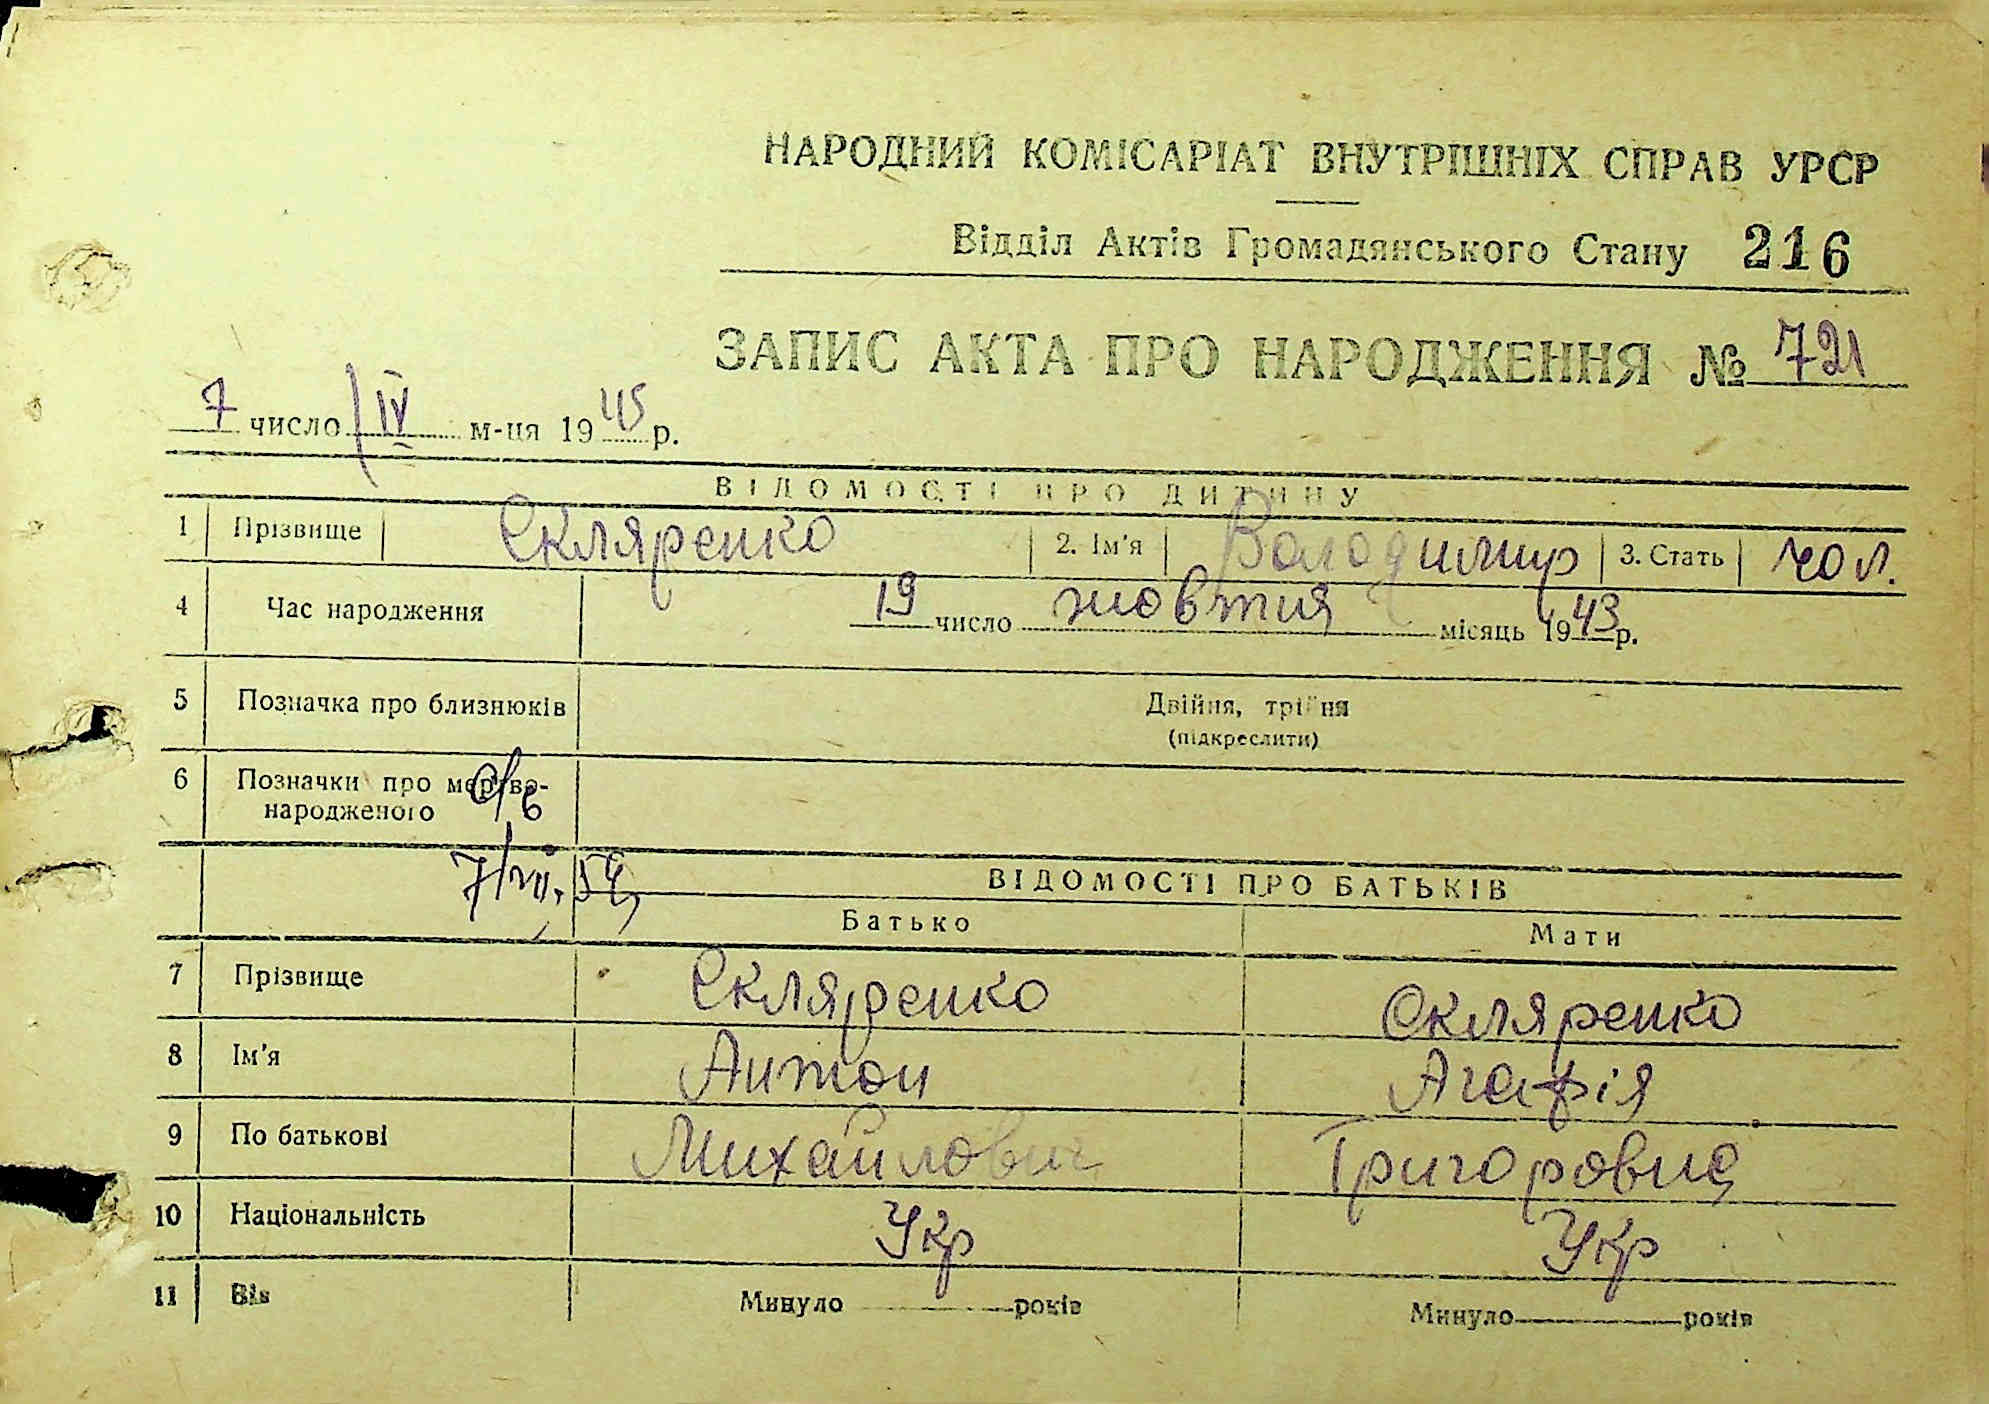 НАРОДНИЙ КОМІСАРІАТ ВНУТРІШНІХ СПРАВ УРСР
Відділ Актів Громадянського Стану 216
ЗАПИС АКТА ПРО НАРОДЖЕННЯ № 721
7 число IV м-ця 1945 р.
ВІДОМОСТІ ПРО ДИТИНУ
1 Прізвище Скляренко 2. Ім'я Володимир 3. Стать чол.
4 Час народження 19 число жовтня місяць 1943 р.
5 Позначка про близнюків Двійня, трійня
(підкреслити)
6 Позначки про мертво-
народженого
7/VII.54
ВІДОМОСТІ ПРО БАТЬКІВ
Батько Мати
7 Прізвище Скляренко Скляренко
8 Ім'я Антон Агафія
9 По батькові Михайлович Григоровна
10 Національність Укр Укр
11 Вік Минуло років Минуло років